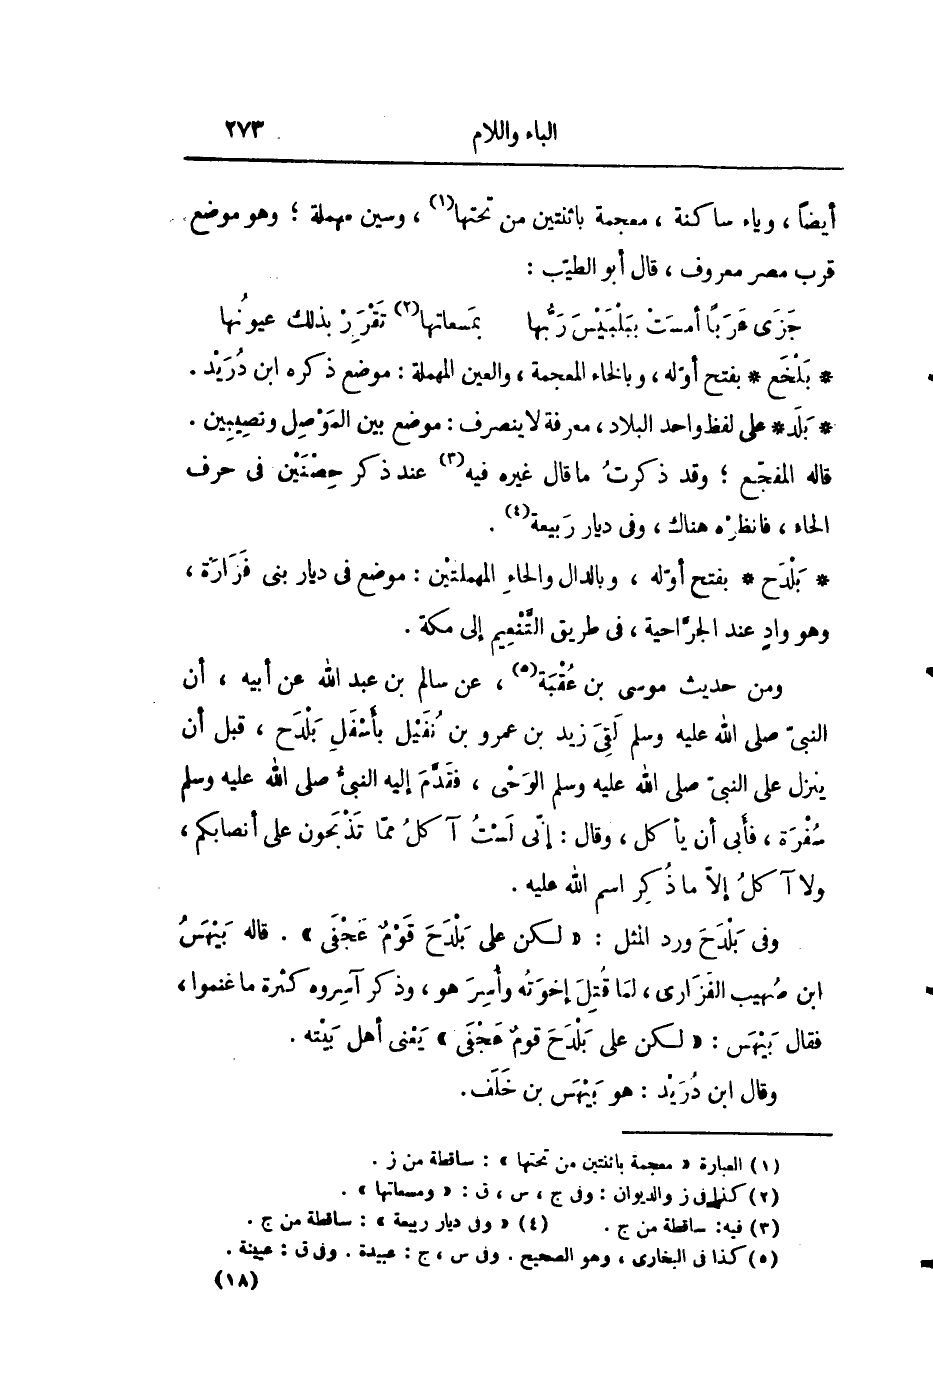 الباء واللام ٢٧٣
أيضاً ، وياء ساكنة ، معجمة باثنتين من تحتها(١) ، وسين مهملة ؛ وهو موضع
قرب مصر معروف ، قال أبو الطيّب :
جَزَى عَرَبًا أمسَتْ ببَلْبَيْسَ رَبُّها بمَسعاتها(٢) تَقْرَرْ بذلك عيونُها
* بَلْخَع * بفتح أوّله ، وبالخاء المعجمة ، والعين المهملة : موضع ذكره ابن دُرَيْد .
* بَلَد * على لفظ واحد البلاد ، معرفة لا ينصرف : موضع بين المَوْصِل ونصِيبِين .
قاله المفجّع ؛ وقد ذكرتُ ما قال غيره فيه(٣) عند ذكر حِصْنَيْن فى حرف
الحاء ، فانظرْه هناك ، وفى ديار رَبيعة(٤) .
* بَلْدَح * بفتح أوّله ، وبالدال والحاءِ المهملتيْن : موضع فى ديار بنى فَزَارَة ،
وهو وادٍ عند الجرَّاحية ، فى طريق التَّنْعِيم إلى مكة .
ومن حديث موسى بن عُقْبَة(٥) ، عن سالم بن عبد الله عن أبيه ، أن
النبىّ صلى الله عليه وسلم لَقِىَ زيد بن عمرو بن نُفَيْل بأَسْفَلِ بَلْدَح ، قبل أن
ينزل على النبىّ صلى الله عليه وسلم الوَحْى ، فقَدَّمَ إليه النبىُّ صلى الله عليه وسلم
سُفْرَة ، فأَبى أن يأكل ، وقال : إنّى لَسْتُ آكلُ ممّا تَذْبَحون على أنصابكم ،
ولا آكلُ إلاّ ما ذُكِر اسم الله عليه .
وفى بَلْدَحَ ورد المثل : « لكن على بَلْدَحَ قَوْمٌ عَجْفَى » . قاله بَيْهَسُ
ابن صُهيب الفَزَارى ، لمَا قُتِلَ إخوَتُه وأُسِرَ هو ، وذكر آسِروه كثرة ما غنموا ،
فقال بَيْهَس : « لكن على بَلْدَحَ قومٌ عَجْفَى » يَعْنى أهل بَيْته .
وقال ابن دُرَيْد : هو بَيْهَس بن خَلَف .
(١) العبارة « معجمة باثنتين من تحتها » : ساقطة من ز .
(٢) كذا فى ز والديوان : وفى ج ، س ، ق : « ومسعاتها » .
(٣) فيه: ساقطة من ج . (٤) « وفى ديار ربيعة » : ساقطة من ج .
(٥) كذا فى البخارى ، وهو الصحيح . وفى س ، ج : عبيدة . وفى ق : عيينة .
(١٨)